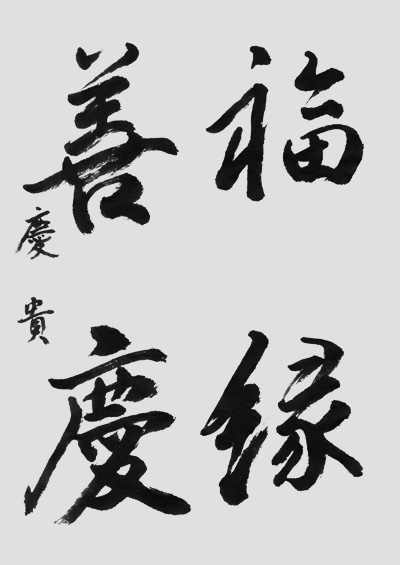 福緣
善慶
慶貴